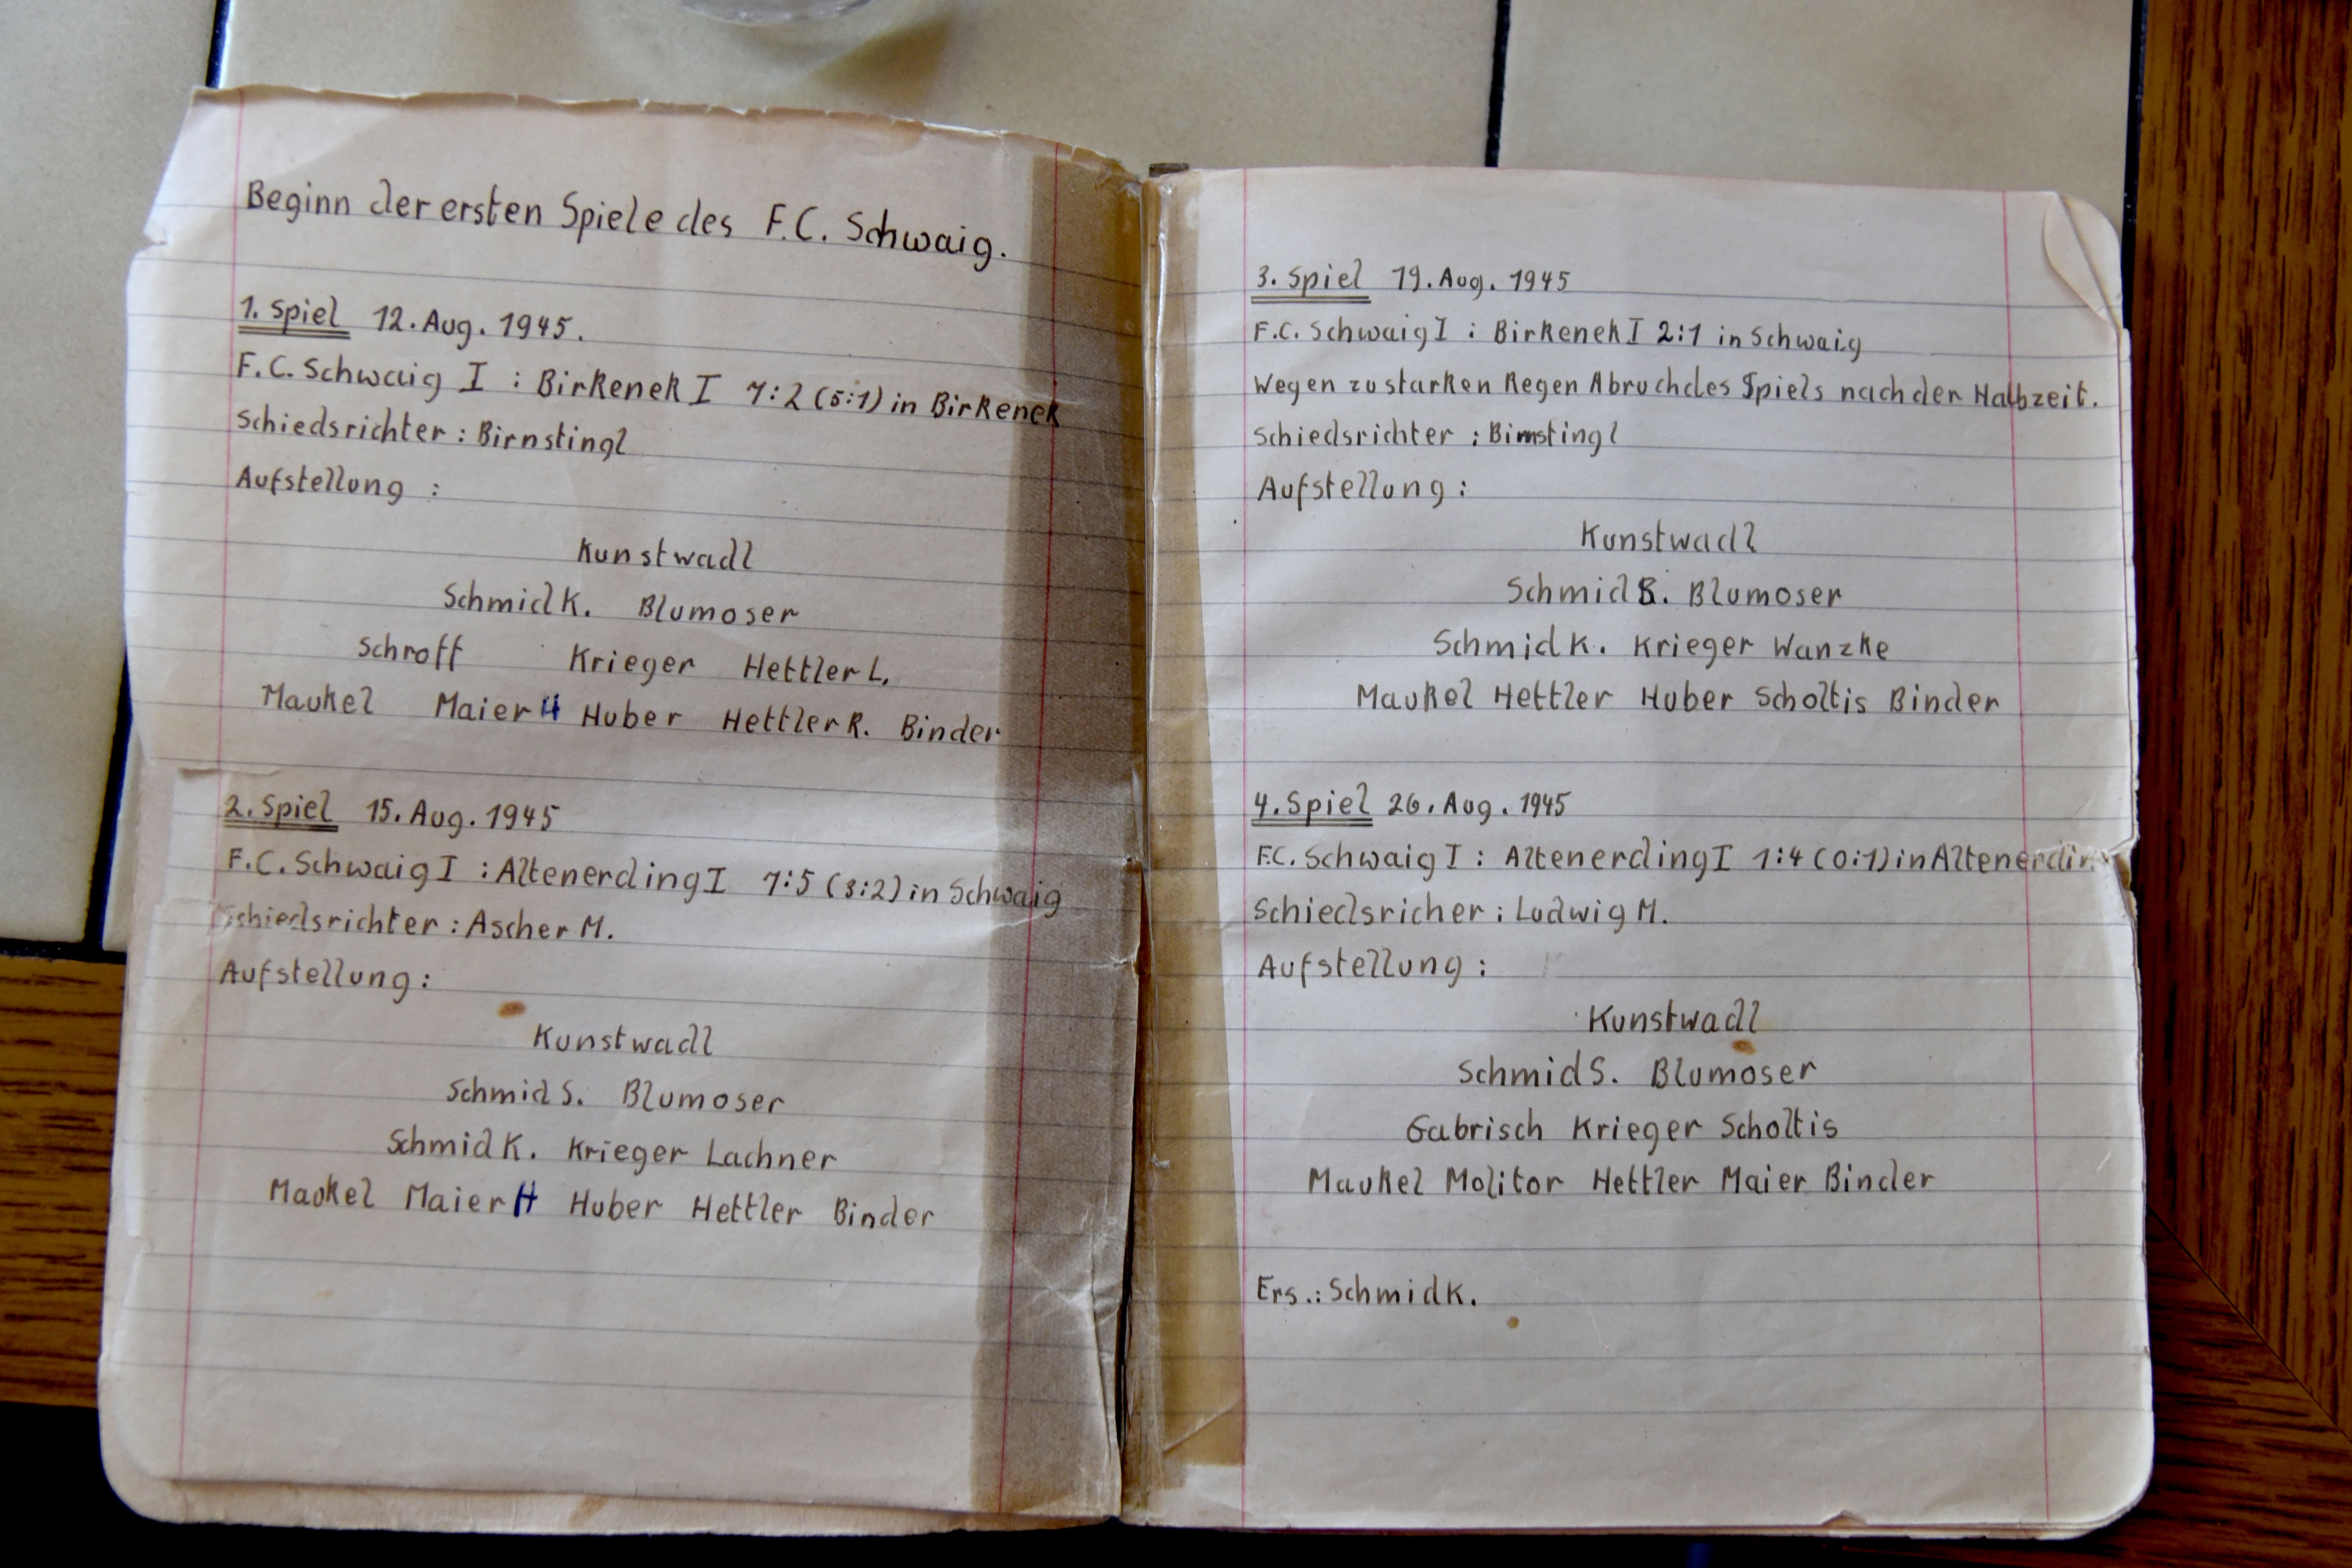 Beginn der ersten Spiele des F.C. Schwaig.
1. Spiel 12. Aug. 1945.
F.C. Schwaig I : Birkenek I 7:2 (5:1) in Birkenek
Schiedsrichter : Birnstingl
Aufstellung :
Kunstwadl
Schmid K. Blumoser
Schroff Krieger Hettler L.
Maukel Maier H Huber Hettler R. Binder
2. Spiel 15. Aug. 1945
F.C. Schwaig I : Altenerding I 7:5 (3:2) in Schwaig
Schiedsrichter : Ascher M.
Aufstellung :
Kunstwadl
Schmid S. Blumoser
Schmid K. Krieger Lachner
Maukel Maier H Huber Hettler Binder
3. Spiel 19. Aug. 1945
F.C. Schwaig I : Birkenek I 2:1 in Schwaig
Wegen zu starken Regen Abruch des Spiels nach der Halbzeit.
Schiedsrichter : Birnstingl
Aufstellung :
Kunstwadl
Schmid S. Blumoser
Schmid K. Krieger Wanzke
Maukel Hettler Huber Scholtis Binder
4. Spiel 26. Aug. 1945
F.C. Schwaig I : Altenerding I 1:4 (0:1) in Altenerdin
Schiedsricher : Ludwig M.
Aufstellung :
Kunstwadl
Schmid S. Blumoser
Gabrisch Krieger Scholtis
Maukel Molitor Hettler Maier Binder
Ers.: Schmid K.